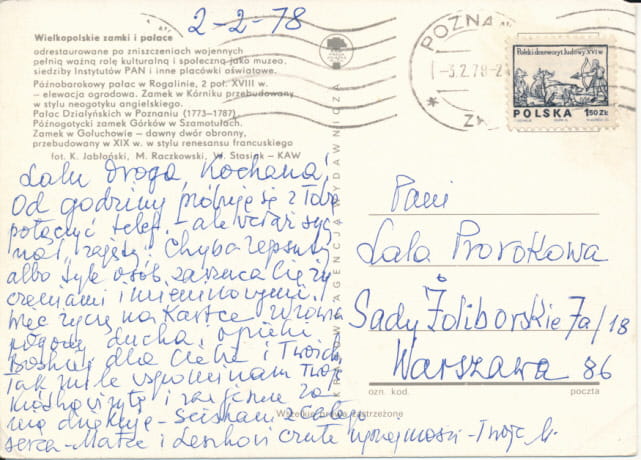 2-2-78
Wielkopolskie zamki i pałace
odrestaurowane po zniszczeniach wojennych
pełnią ważną rolę kulturalną i społeczną jako muzea,
siedziby Instytutów PAN i inne placówki oświatowe.
Późnobarokowy pałac w Rogalinie, 2 poł. XVIII w.
– elewacja ogrodowa. Zamek w Kórniku przebudowany
w stylu neogotyku angielskiego.
Pałac Działyńskich w Poznaniu (1773–1787)
Późnogotycki zamek Górków w Szamotułach.
Zamek w Gołuchowie – dawny dwór obronny,
przebudowany w XIX w. w stylu renesansu francuskiego
fot. K. Jabłoński, M. Raczkowski, W. Stasiak – KAW
Lalu Droga, Kochana!
Od godziny próbuję się z Tobą
połączyć telef. – ale wciąż syg
nał zajęty. Chyba zepsuty
albo tyle osób zarzuca Cię ży
czeniami imieninowymi!
więc życzę na kartce zdrowia
pogody ducha, opieki
Boskiej dla Ciebie i Twoich
Tak mile wspominam Twoją
wizytę i za
nią dziękuję – Ściskam z całego
serca – Matce i czułe – Twoja M.
KRAJOWA AGENCJA WYDAWNICZA
POZNAŃ
-3.2.78-2
Polski drzeworyt ludowy XVI w.
POLSKA 1,50 ZŁ
Pani
Lala Prorokowa
Sady Żoliborskie 7a/18
Warszawa 86
ozn. kod. poczta
Wszelkie prawa zastrzeżone